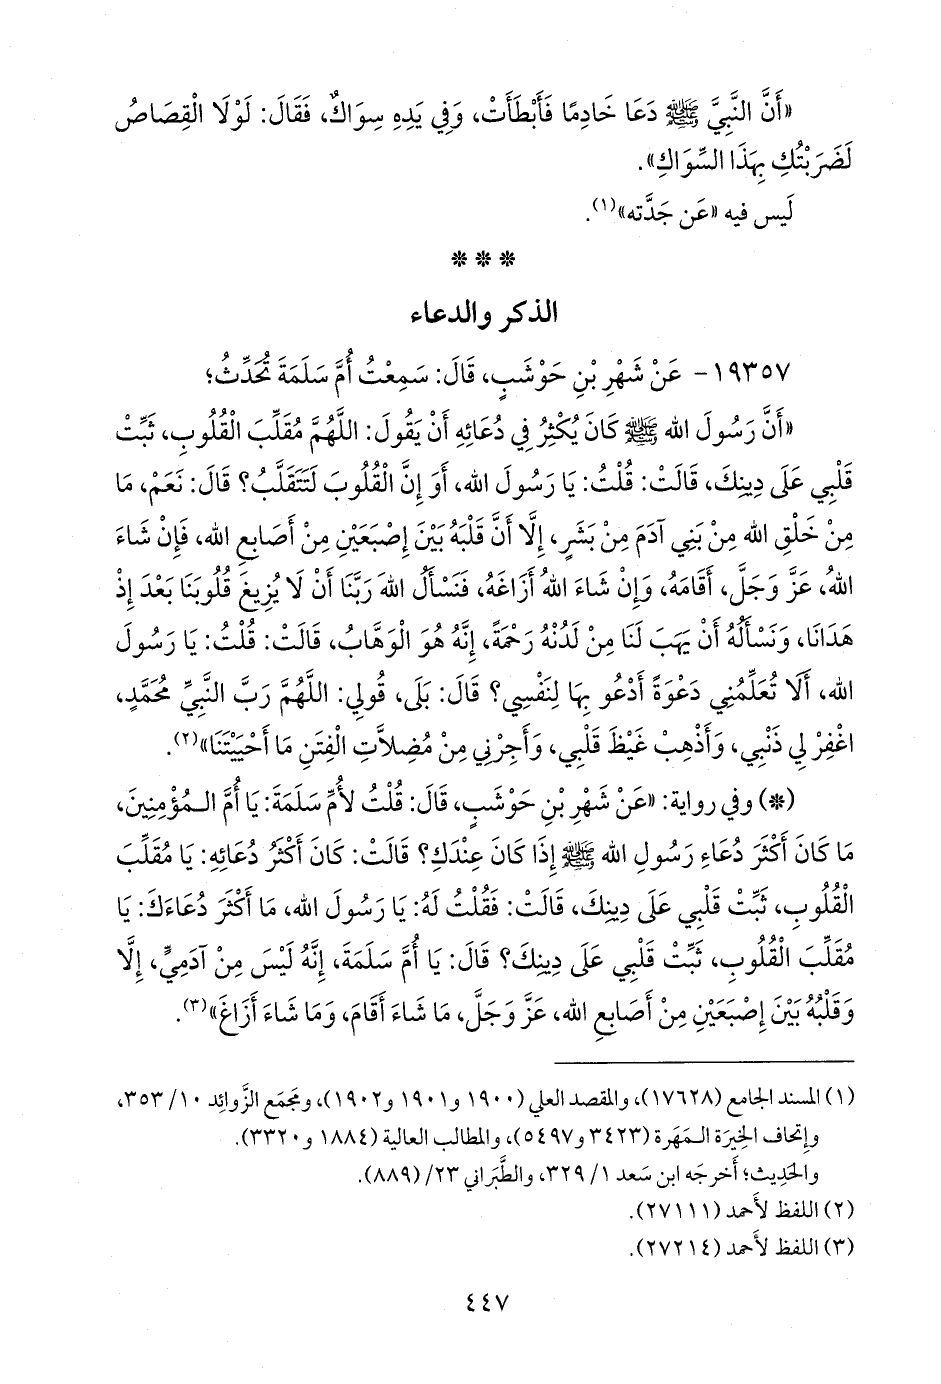 «أَنَّ النَّبِيَّ ﷺ دَعَا خَادِمًا فَأَبْطَأَتْ، وَفِي يَدِهِ سِوَاكٌ، فَقَالَ: لَوْلَا الْقِصَاصُ
لَضَرَبْتُكِ بِهَذَا السِّوَاكِ».
لَيس فيه «عَن جَدَّته»(١).
* * *
الذكر والدعاء
١٩٣٥٧ - عَنْ شَهْرِ بْنِ حَوْشَبٍ، قَالَ: سَمِعْتُ أُمَّ سَلَمَةَ تُحَدِّثُ؛
«أَنَّ رَسُولَ الله ﷺ كَانَ يُكْثِرُ فِي دُعَائِهِ أَنْ يَقُولَ: اللَّهُمَّ مُقَلِّبَ الْقُلُوبِ، ثَبِّتْ
قَلْبِي عَلَى دِينِكَ، قَالَتْ: قُلْتُ: يَا رَسُولَ الله، أَوَ إِنَّ الْقُلُوبَ لَتَتَقَلَّبُ؟ قَالَ: نَعَمْ، مَا
مِنْ خَلْقِ الله مِنْ بَنِي آدَمَ مِنْ بَشَرٍ، إِلَّا أَنَّ قَلْبَهُ بَيْنَ إِصْبَعَيْنِ مِنْ أَصَابِعِ الله، فَإِنْ شَاءَ
اللهُ، عَزَّ وَجَلَّ، أَقَامَهُ، وَإِنْ شَاءَ اللهُ أَزَاغَهُ، فَنَسْأَلُ اللهَ رَبَّنَا أَنْ لَا يُزِيغَ قُلُوبَنَا بَعْدَ إِذْ
هَدَانَا، وَنَسْأَلُهُ أَنْ يَهَبَ لَنَا مِنْ لَدُنْهُ رَحْمَةً، إِنَّهُ هُوَ الْوَهَّابُ، قَالَتْ: قُلْتُ: يَا رَسُولَ
الله، أَلَا تُعَلِّمُنِي دَعْوَةً أَدْعُو بِهَا لِنَفْسِي؟ قَالَ: بَلَى، قُولِي: اللَّهُمَّ رَبَّ النَّبِيِّ مُحَمَّدٍ،
اغْفِرْ لِي ذَنْبِي، وَأَذْهِبْ غَيْظَ قَلْبِي، وَأَجِرْنِي مِنْ مُضِلاَّتِ الْفِتَنِ مَا أَحْيَيْتَنَا»(٢).
(*) وفي رواية: «عَنْ شَهْرِ بْنِ حَوْشَبٍ، قَالَ: قُلْتُ لأُمِّ سَلَمَةَ: يَا أُمَّ الْمُؤْمِنِينَ،
مَا كَانَ أَكْثَرَ دُعَاءِ رَسُولِ الله ﷺ إِذَا كَانَ عِنْدَكِ؟ قَالَتْ: كَانَ أَكْثَرُ دُعَائِهِ: يَا مُقَلِّبَ
الْقُلُوبِ، ثَبِّتْ قَلْبِي عَلَى دِينِكَ، قَالَتْ: فَقُلْتُ لَهُ: يَا رَسُولَ الله، مَا أَكْثَرَ دُعَاءَكَ: يَا
مُقَلِّبَ الْقُلُوبِ، ثَبِّتْ قَلْبِي عَلَى دِينِكَ؟ قَالَ: يَا أُمَّ سَلَمَةَ، إِنَّهُ لَيْسَ مِنْ آدَمِيٍّ، إِلَّا
وَقَلْبُهُ بَيْنَ إِصْبَعَيْنِ مِنْ أَصَابِعِ الله، عَزَّ وَجَلَّ، مَا شَاءَ أَقَامَ، وَمَا شَاءَ أَزَاغَ»(٣).
(١) المسند الجامع (١٧٦٢٨)، والمقصد العلي (١٩٠٠ و١٩٠١ و١٩٠٢)، ومَجمَع الزَّوائِد ١٠/ ٣٥٣،
وإِتحاف الخِيرَة الـمَهَرة (٣٤٢٣ و٥٤٩٧)، والمطالب العالية (١٨٨٤ و٣٣٢٠).
والحَدِيث؛ أَخرجَه ابن سَعد ١/ ٣٢٩، والطَّبَراني ٢٣/ (٨٨٩).
(٢) اللفظ لأَحمد (٢٧١١١).
(٣) اللفظ لأَحمد (٢٧٢١٤).
٤٤٧